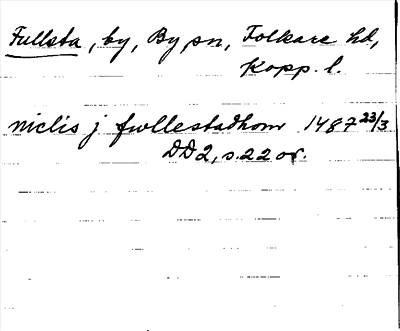 Fullsta, by, By sn, Folkare hd,
Kopp. l.
niclis j fwllestadhom 1487 23/3
DD2, s. 22 or.